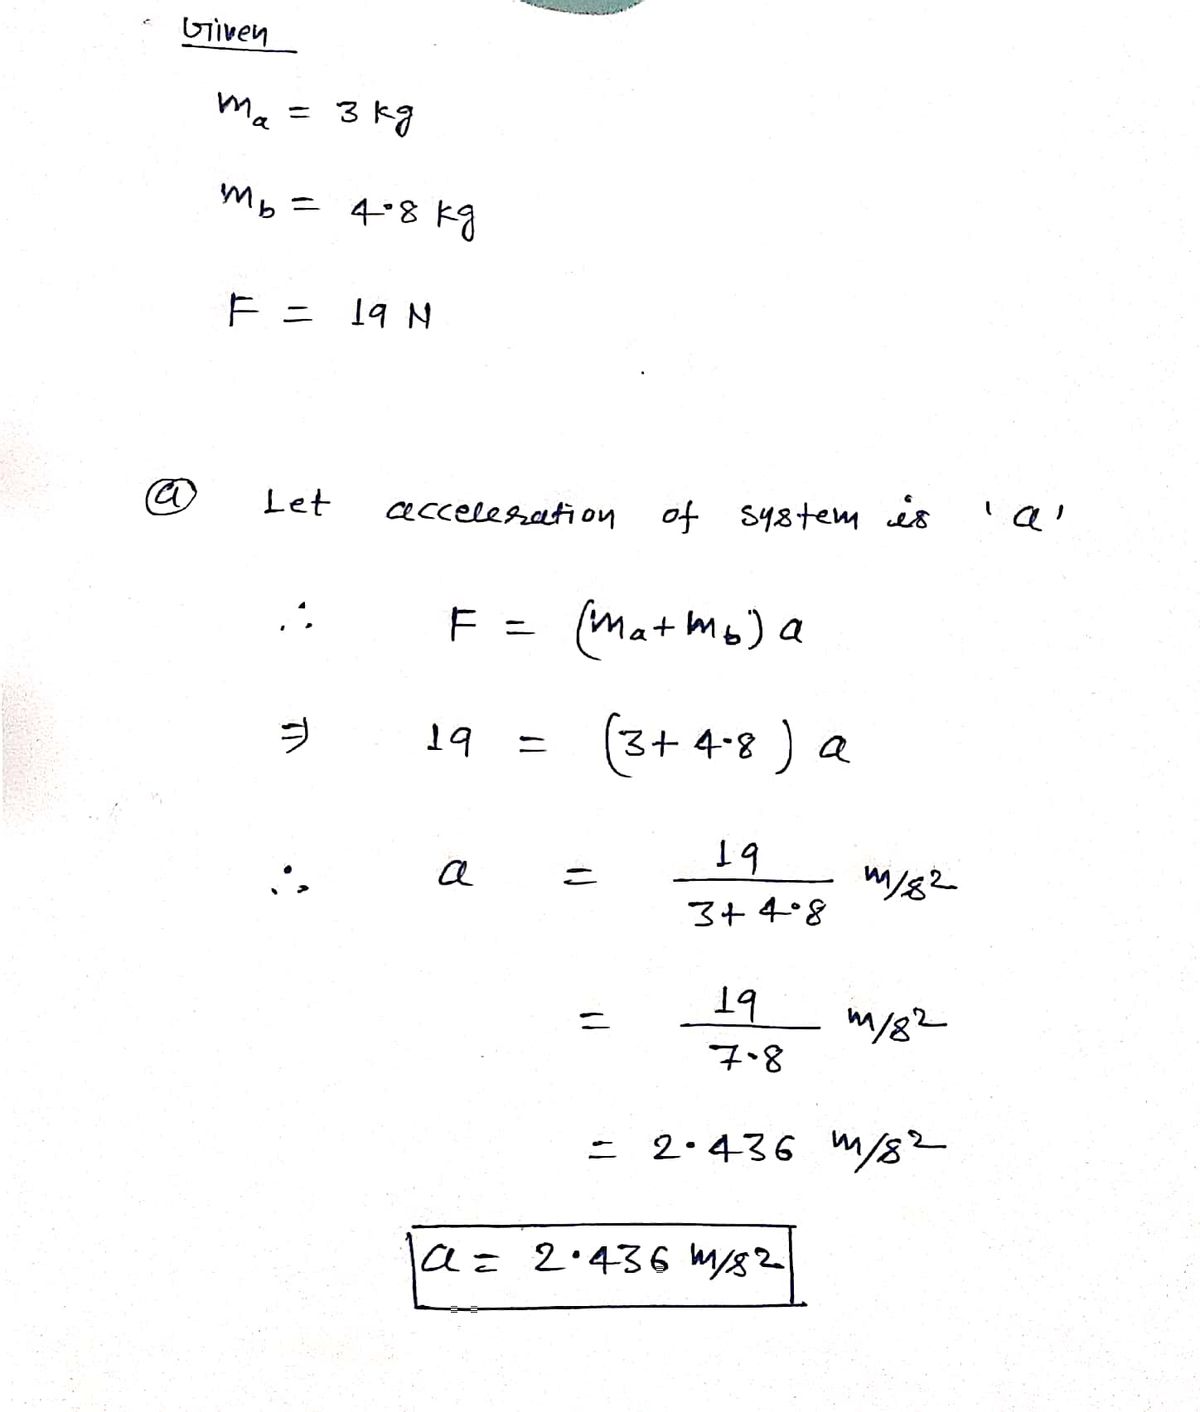 Given
ma = 3 kg
mb = 4.8 kg
F = 19 N
(a) Let acceleration of system is 'a'
∴ F = (ma + mb) a
⇒ 19 = (3 + 4.8) a
∴ a = 19 / (3 + 4.8) m/s²
= 19 / 7.8 m/s²
= 2.436 m/s²
a = 2.436 m/s²